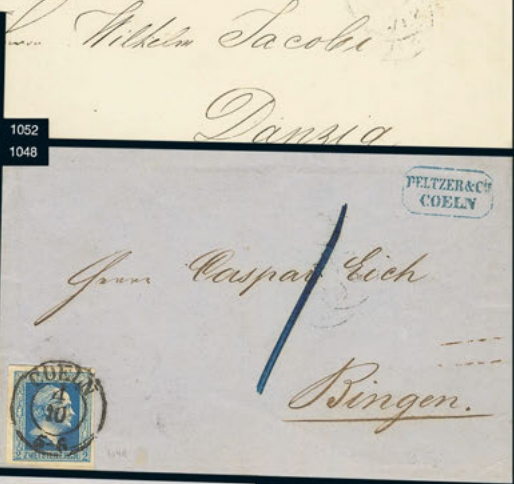 Herrn Wilhelm Jacobi
Danzig
1052
1048
PELTZER & Cie
COELN
Herrn Caspar Eich
Bingen.
COELN
4
10
5-6
2 2